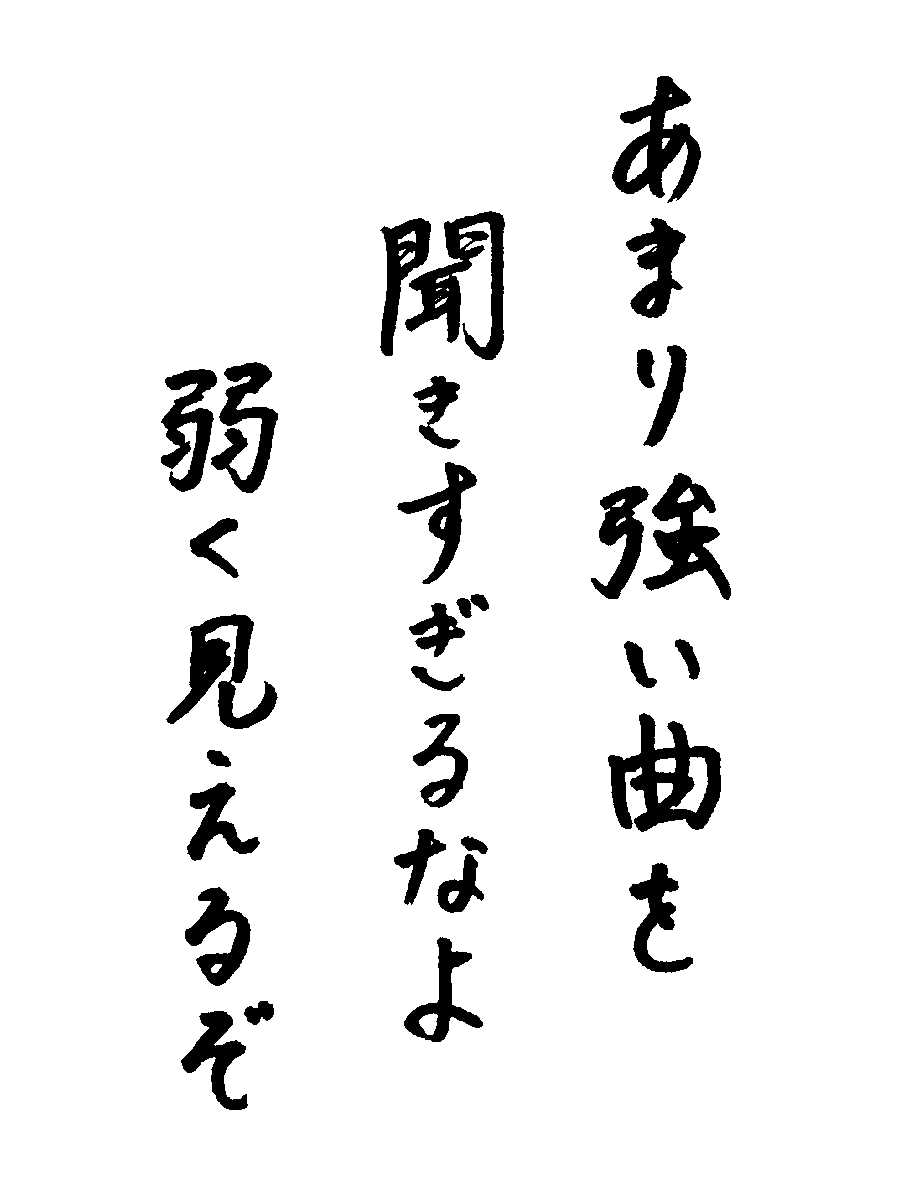 あまり強い曲を
聞きすぎるなよ
弱く見えるぞ